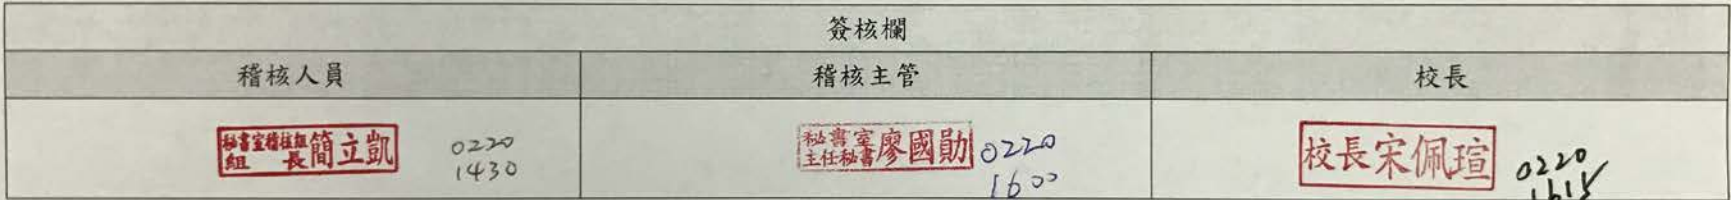 簽核欄
稽核人員
稽核主管
校長
秘書室稽核組
組長
簡立凱
0220
1430
秘書室
主任秘書
廖國勛
0220
1600
校長宋佩瑄
0220
1615